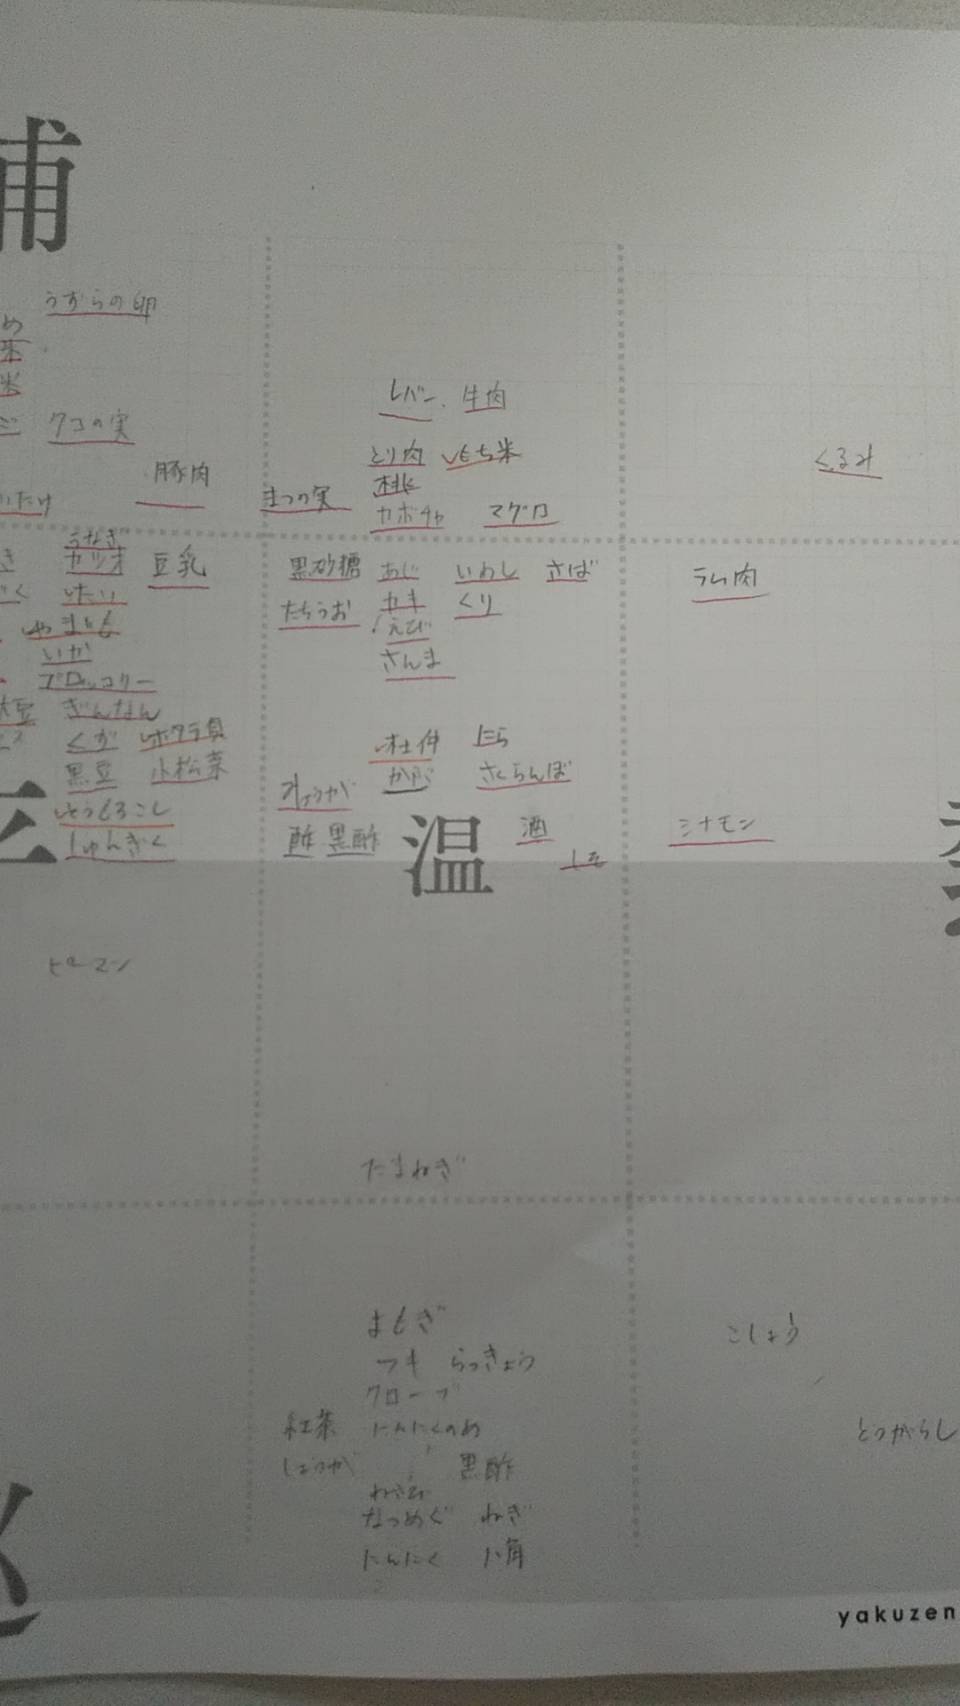 補
うずらの卵
め
米
米
クコの実
豚肉
いたけ
レバー、牛肉
とり肉 もち米
まつの実 桃
カボチャ マグロ
くるみ
うなぎ
き カツオ 豆乳
く たい
やまいも
いか
ブロッコリー
大豆 ぎんなん
くず ホタテ貝
黒豆 小松菜
とうもろこし
しゅんぎく
ピーマン
黒砂糖 あじ いわし さば
たちうお カキ くり
えび
さんま
杜仲 にら
みょうが かぶ さくらんぼ
酢 黒酢 温 酒
しそ
たまねぎ
ラム肉
シナモン
よもぎ
フキ らっきょう
クローブ
紅茶 にんにくのめ
しょうが 黒酢
わさび
なつめぐ ねぎ
にんにく 八角
こしょう
とうがらし
yakuzen